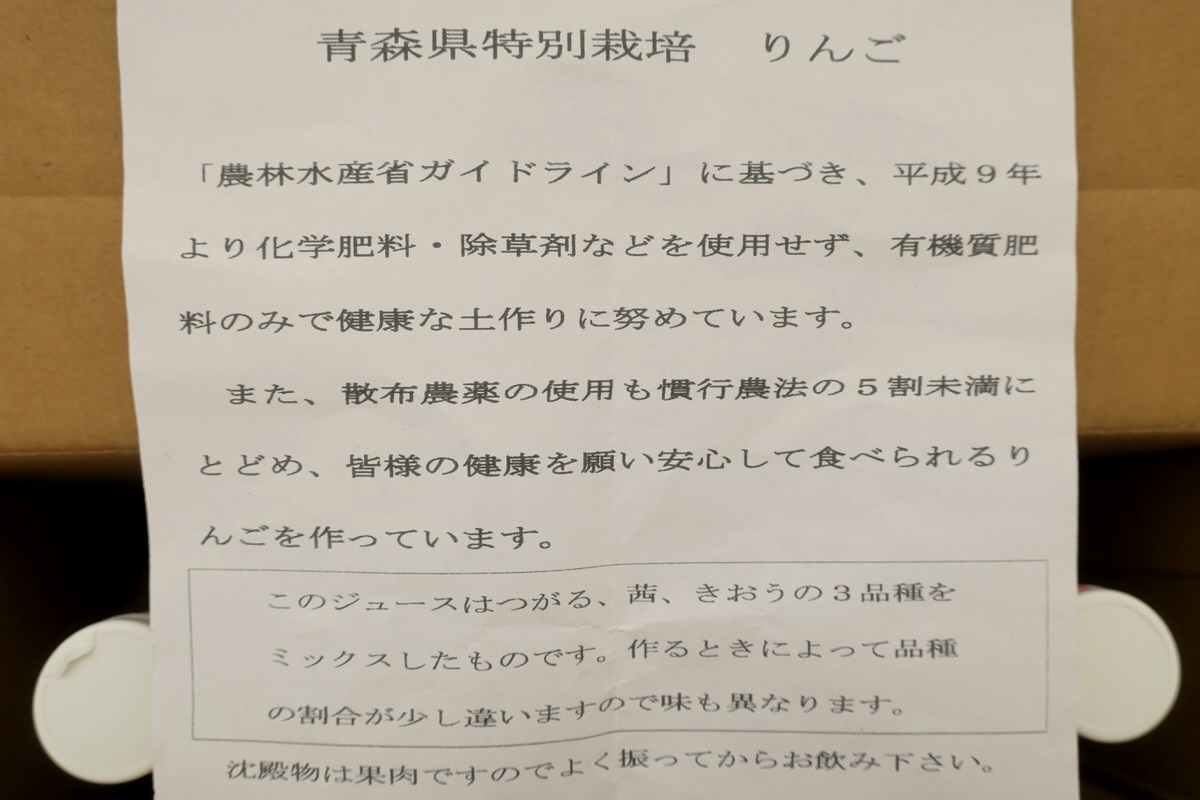 青森県特別栽培　りんご
「農林水産省ガイドライン」に基づき、平成９年
より化学肥料・除草剤などを使用せず、有機質肥
料のみで健康な土作りに努めています。
また、散布農薬の使用も慣行農法の５割未満に
とどめ、皆様の健康を願い安心して食べられるり
んごを作っています。
このジュースはつがる、茜、きおうの３品種を
ミックスしたものです。作るときによって品種
の割合が少し違いますので味も異なります。
沈殿物は果肉ですのでよく振ってからお飲み下さい。